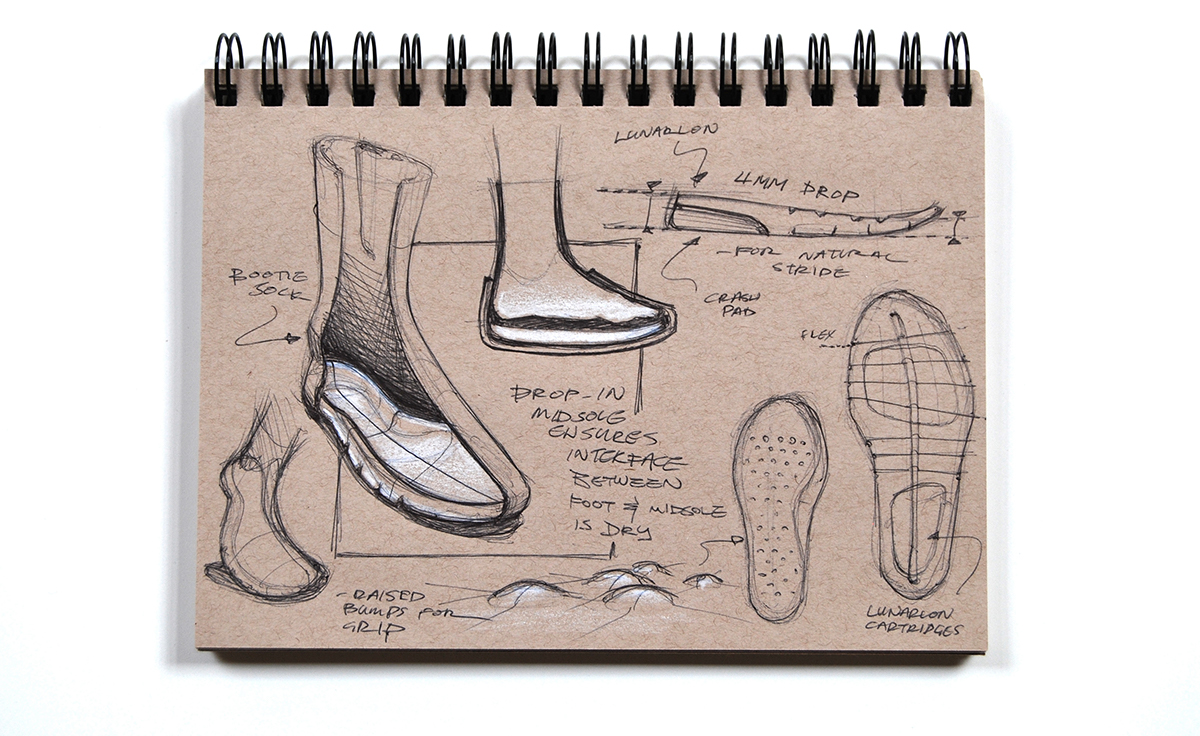 LUNARLON
4MM DROP
-FOR NATURAL
STRIDE
CRASH
PAD
BOOTIE
SOCK
FLEX
DROP-IN
MIDSOLE
ENSURES
INTERFACE
BETWEEN
FOOT & MIDSOLE
IS DRY
-RAISED
BUMPS FOR
GRIP
LUNARLON
CARTRIDGES